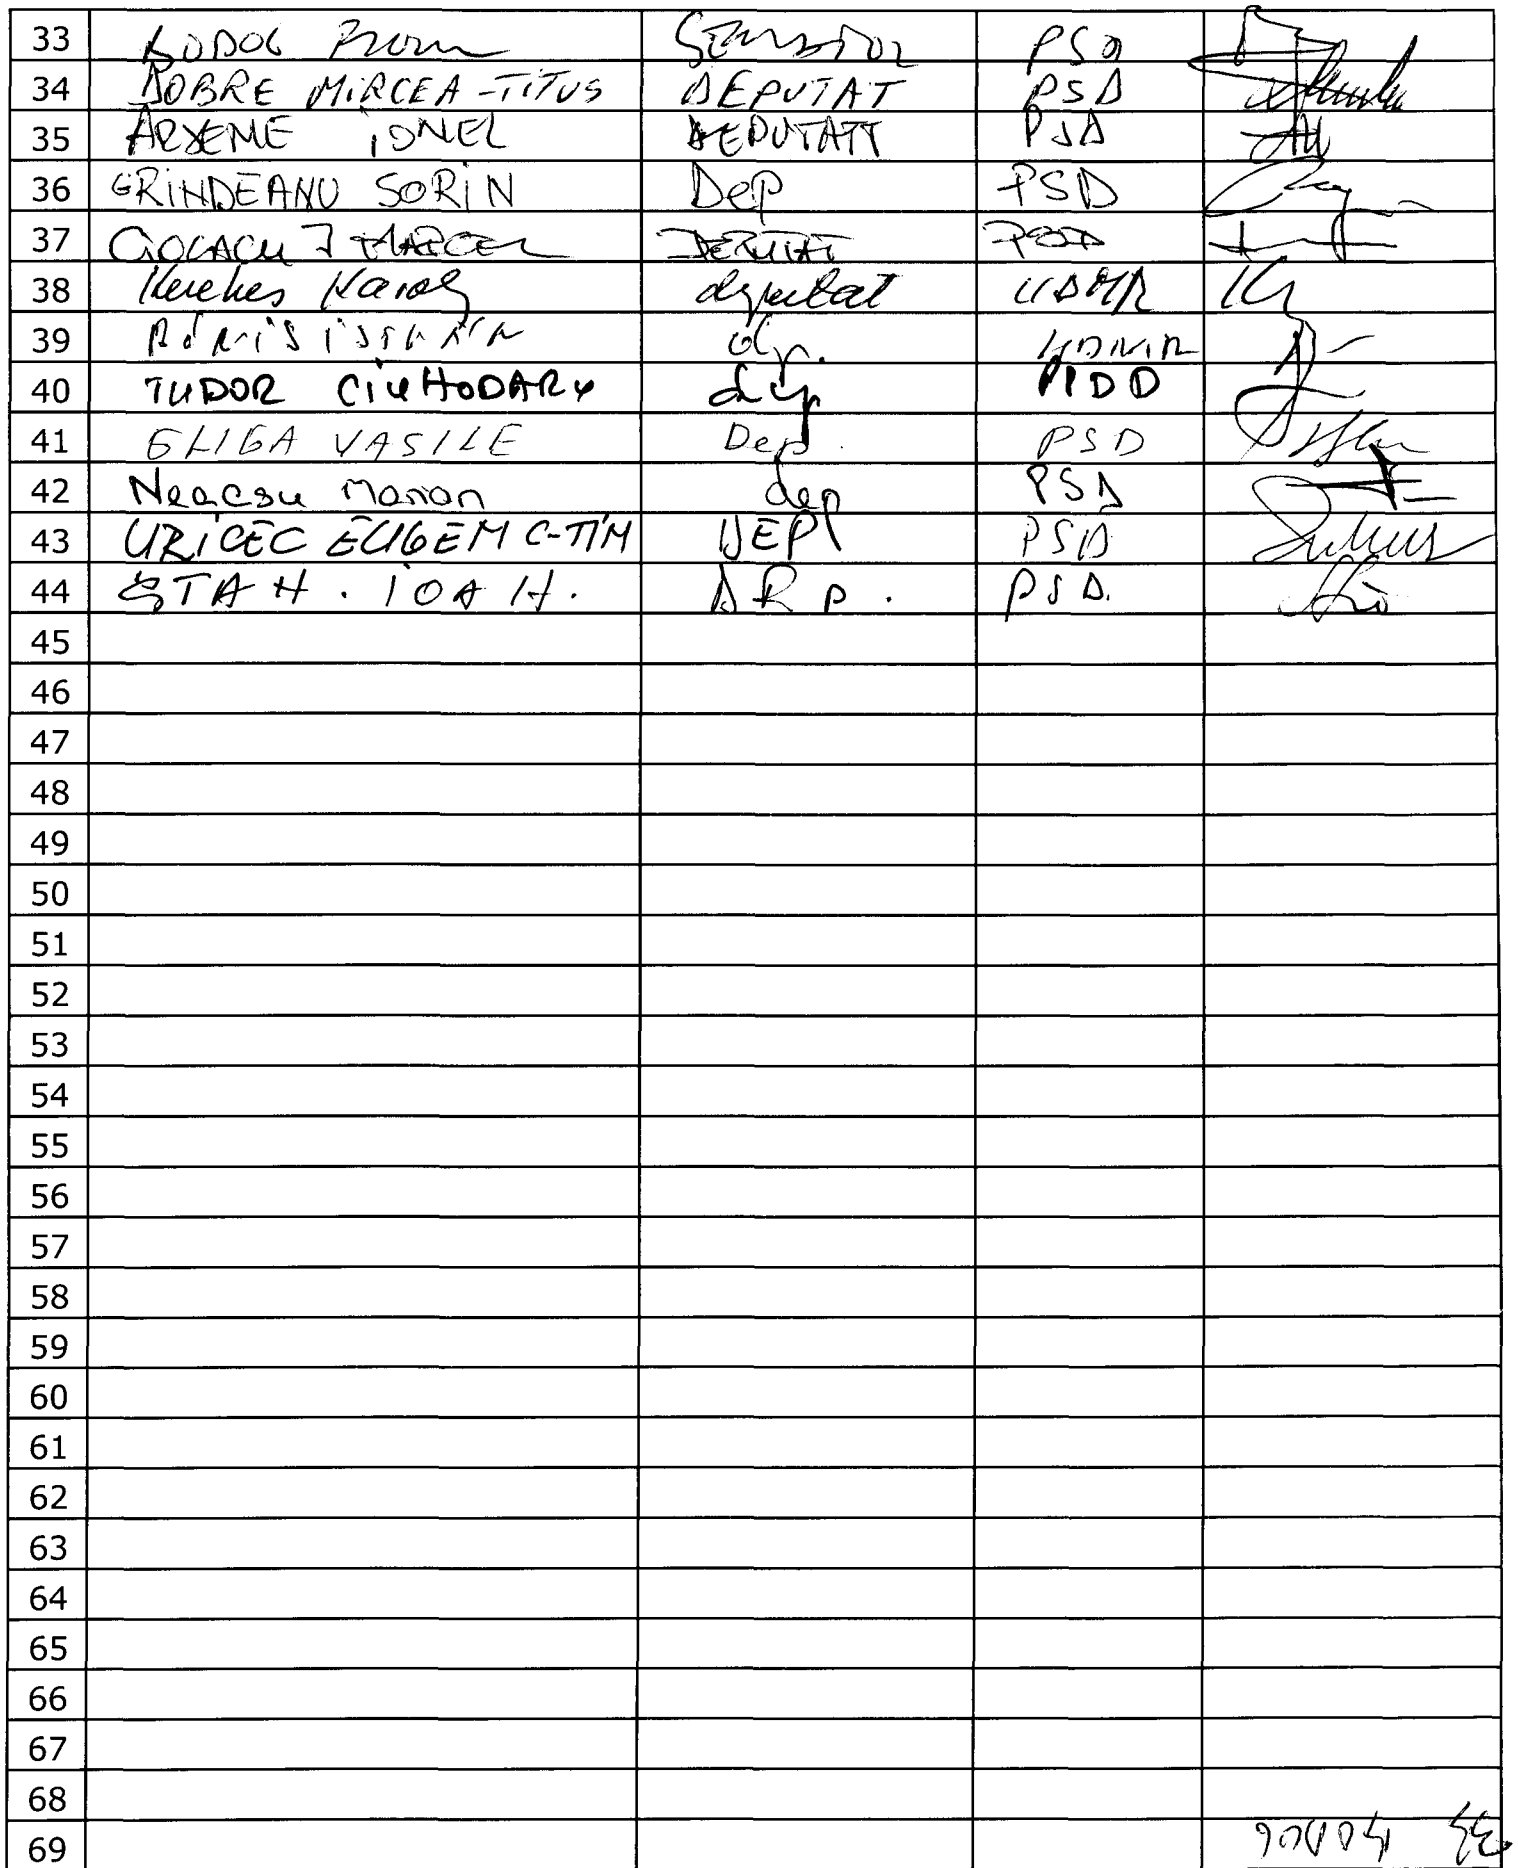 33 BODOG SENATOR PSD
34 DOBRE MIRCEA-TITUS DEPUTAT PSD
35 ARSENE IONEL DEPUTAT PSD
36 GRINDEANU SORIN Dep PSD
37 CIOLACU I MARCEL DEPUTAT PSD
38 Kerekes Karoly deputat UDMR
39 dep. UDMR
40 TUDOR CIUHODARU dep PPDD
41 GLIGA VASILE Dep. PSD
42 Neacsu Marian dep PSD
43 URICEC EUGEN C-TIN DEP PSD
44 STAN. IOAN. DEP. PSD.
45
46
47
48
49
50
51
52
53
54
55
56
57
58
59
60
61
62
63
64
65
66
67
68
69
33 BODOG